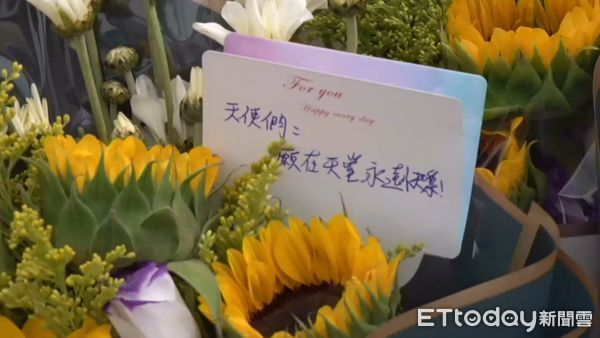 For you
Happy every day
天使們：
願在天堂永遠快樂！
ETtoday新聞雲